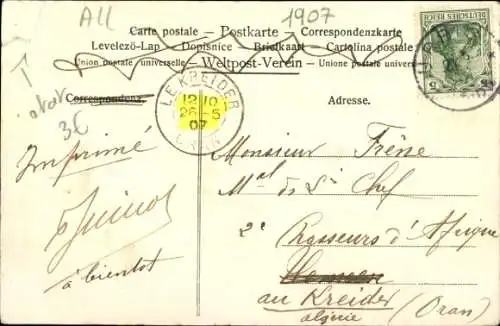 All
1907
Carte postale - Postkarte - Correspondenzkarte
Levelező-Lap - Dopisnice - Briefkaart - Cartolina postale
Union postale universelle - Weltpost-Verein - Unione postale
DEUTSCHES REICH
5 5
Correspondenz.
Adresse.
3€
LE KREIDER
12 10
5
07
ORAN
Imprimé
à bientôt
Monsieur Frêne
Mal des Lis Chef
2e Chasseurs d'Afrique
Tlemcen
au Kreider (Oran)
algérie